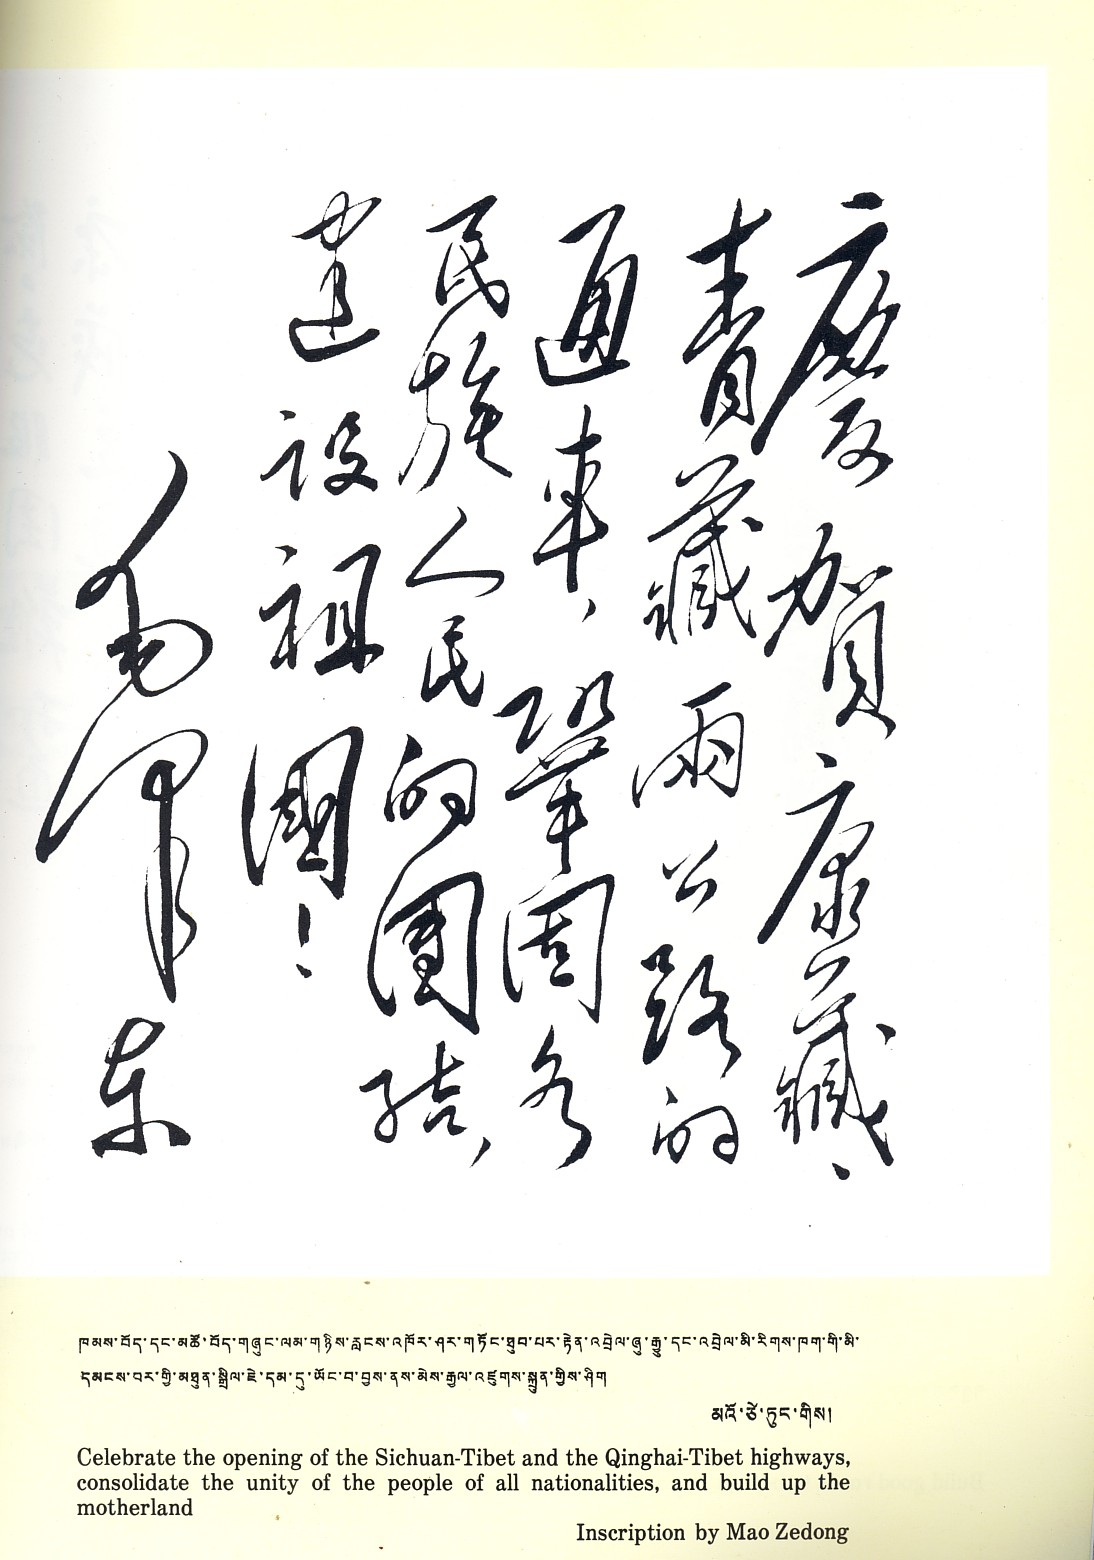 慶賀康藏、
青藏兩公路的
通車，鞏固各
民族人民的團結，
建設祖國！
毛澤东
ཁམས་བོད་དང་མཚོ་བོད་གཞུང་ལམ་གཉིས་རླངས་འཁོར་ཤར་གཏོང་ཐུབ་པར་རྟེན་འབྲེལ་ཞུ་རྒྱུ་དང་འབྲེལ་མི་རིགས་ཁག་གི་མི་
དམངས་བར་གྱི་མཐུན་སྒྲིལ་ཇེ་དམ་དུ་ཡོང་བ་བྱས་ནས་མེས་རྒྱལ་འཛུགས་སྐྲུན་གྱིས་ཤིག
མའོ་ཙེ་ཏུང་གིས།
Celebrate the opening of the Sichuan-Tibet and the Qinghai-Tibet highways,
consolidate the unity of the people of all nationalities, and build up the
motherland
Inscription by Mao Zedong